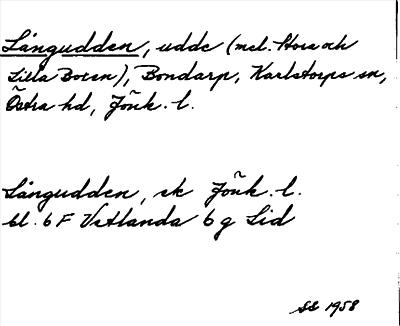 Långudden, udde (mel. Stora och
Lilla Boten), Bondarp, Karlstorps sn,
Östra hd, Jönk. l.
Långudden, ek Jönk. l.
bl. 6 F Vetlanda 6 g Lid
SS 1958